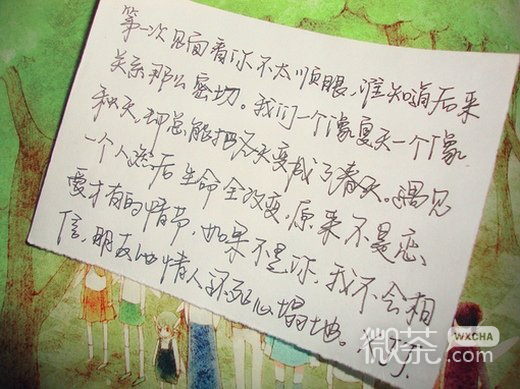 第一次见面看你不太顺眼，谁知道后来
关系那么密切。我们一个像夏天一个像
秋天，却总能把冬天变成了春天。遇见
一个人然后生命全改变，原来不是恋
爱才有的情节，如果不是你，我不会相
信，朋友比情人还死心塌地。
微茶
WXCHA
.com